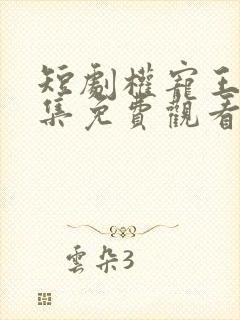 短劇權寵王
集免費觀看
雲朵3